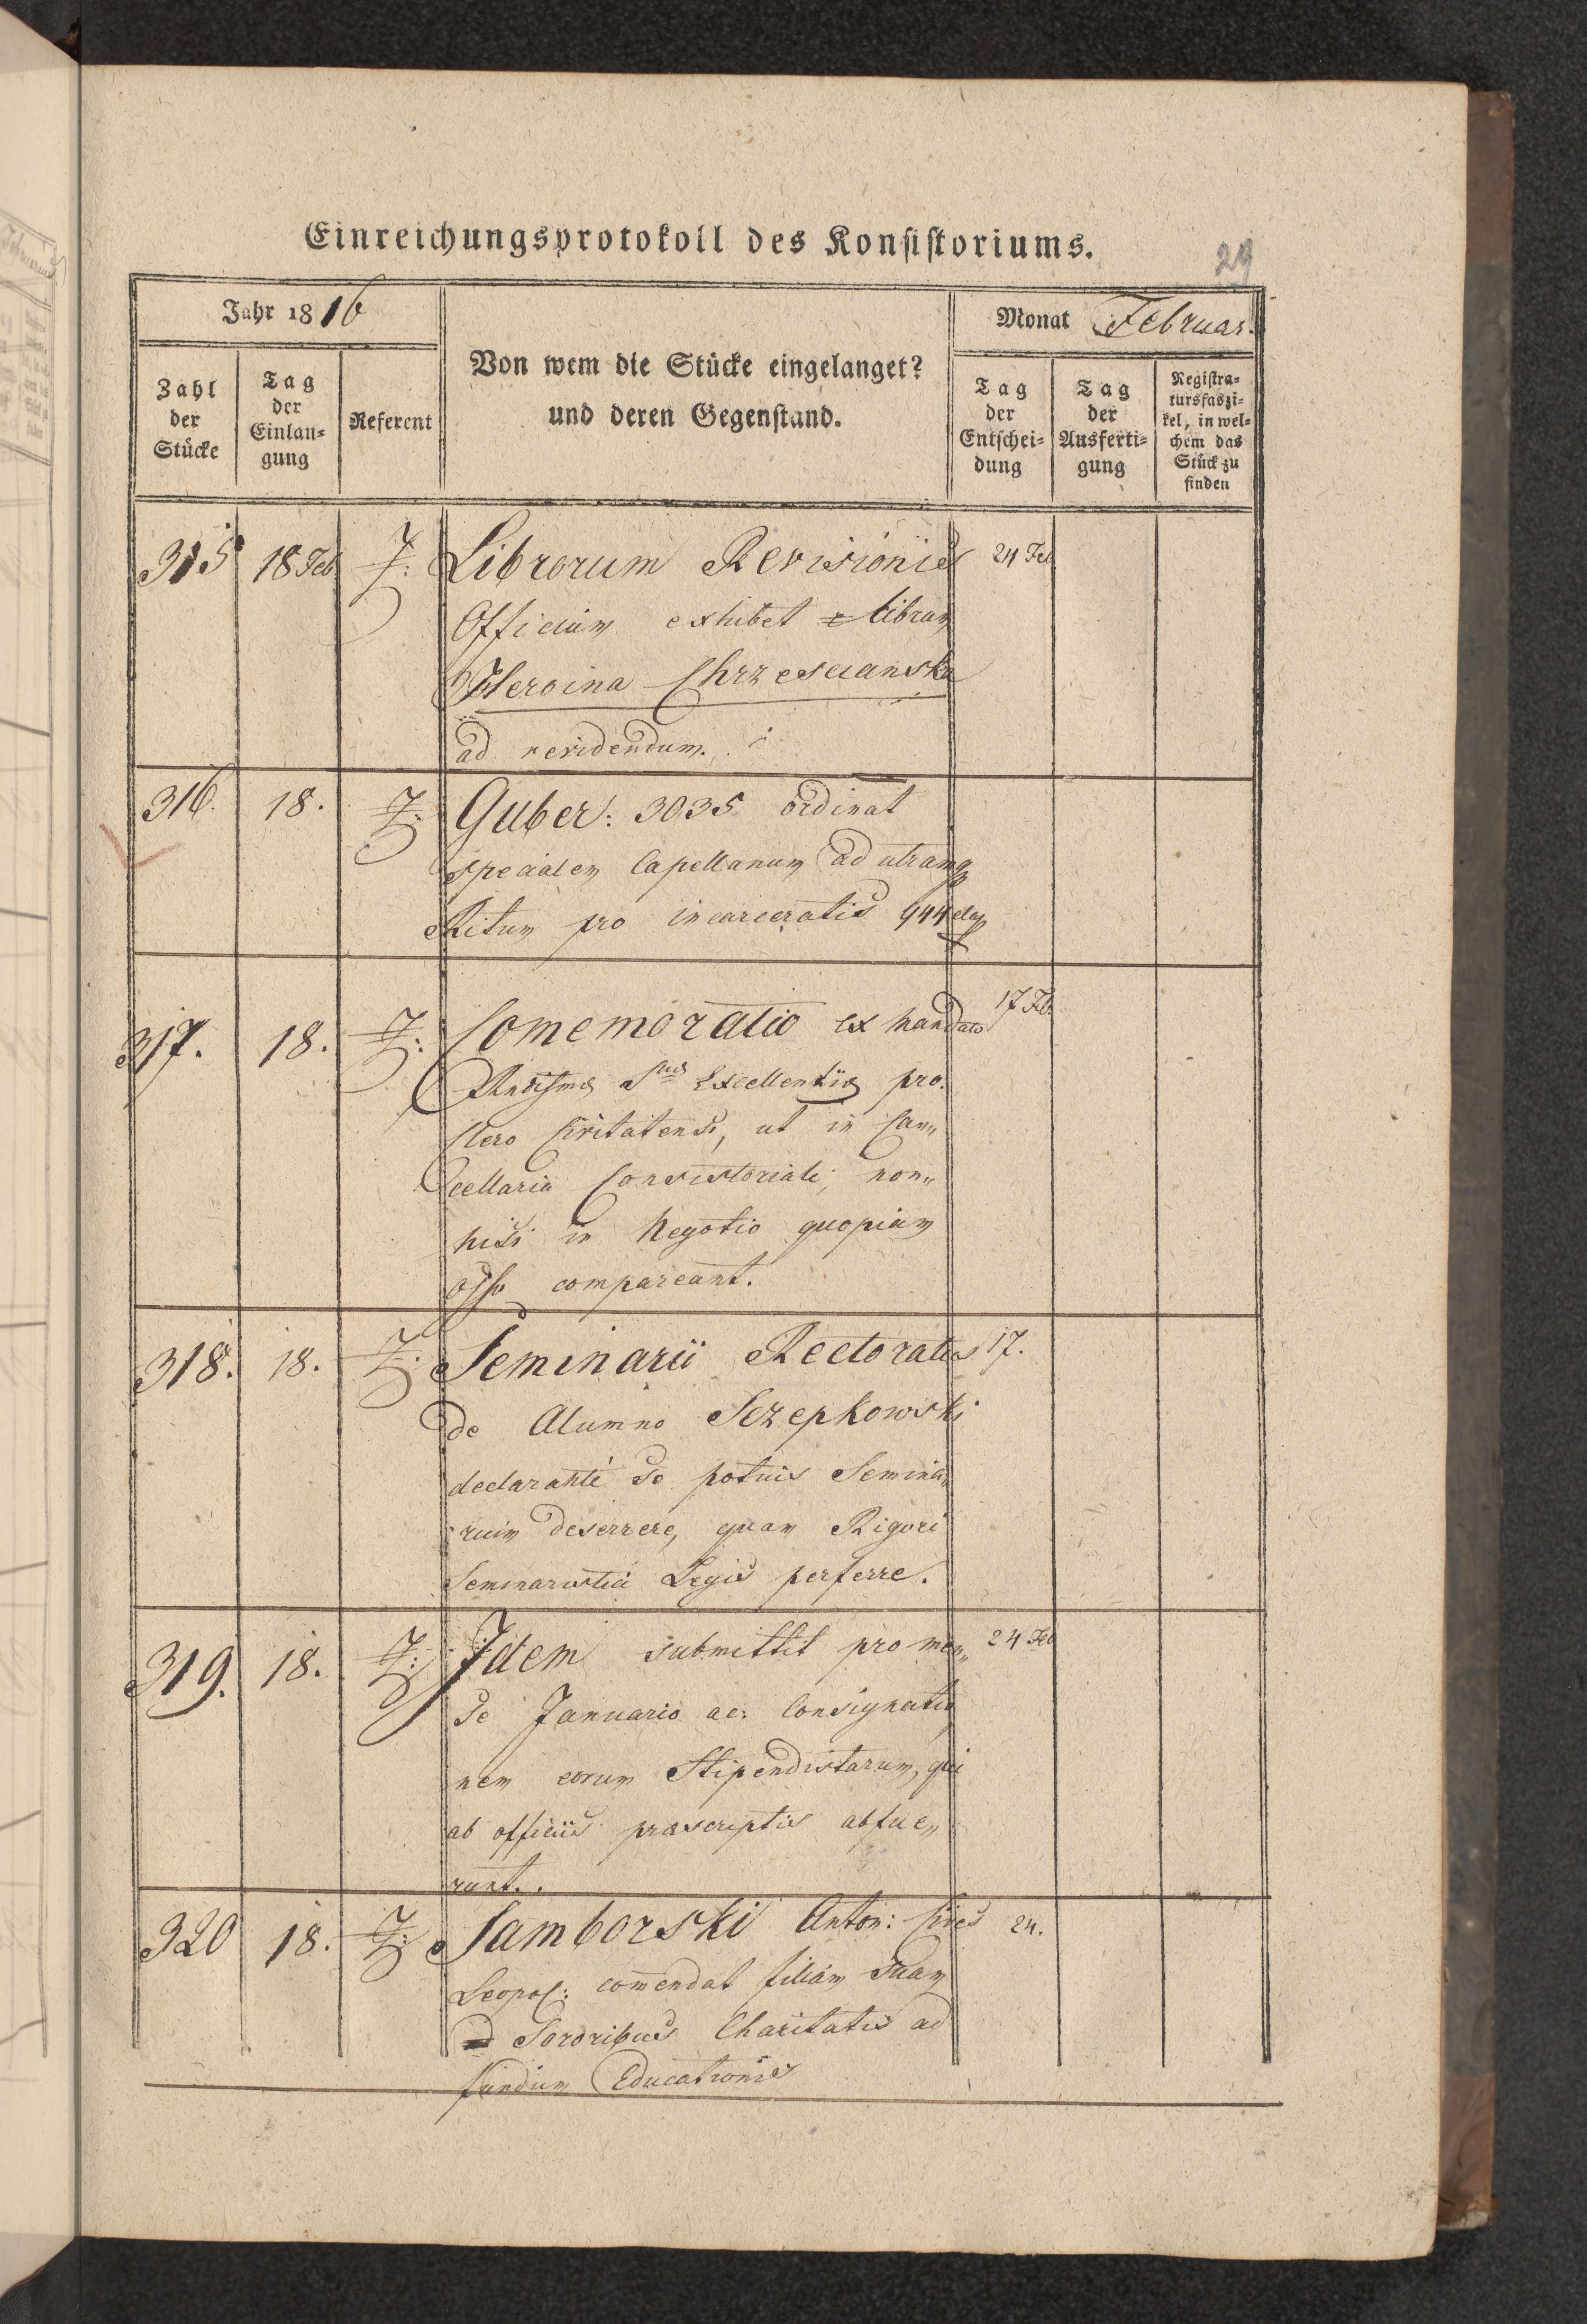 Einreichungsprotokoll des Konsistoriums.
29
Jahr 1816
Von wem die Stücke eingelanget?
und deren Gegenstand.
Monat Februar.
Zahl
der
Stücke
Tag
der
Einlan-
gung
Referent
Tag
der
Entschei-
dung
Tag
der
Ausferti-
gung
Registra-
tursfaszi-
kel, in wel-
chem das
Stück zu
finden
315 18 Feb Librorum Revisionis 24 Feb
Officium exhibet librum
Heroina Chrzescianska
ad revidendum.
316. 18. Guber: 3035 ordinat
specialem Capellanum ad utramq
Ritum pro incarceratis 944
317. 18. Comemoratio ex mandato 17 Feb.
Excellentiæ pro
Clero Civitatensi, ut in Can„
cellaria Consistoriali, non„
nisi in Negotio quopiam
compareant.
318. 18. Seminarii Rectoratus 17.
de Alumno Sczepkowski
declaranté se potius Semina„
rium deserrere, quam Rigori
Seminaristici Legis perferre.
319. 18. Idem submittit pro men„ 24 Feb
se Januario ac: Consignatio
nem eorum Stipendistarum, qui
ab officiis præscriptis abfue„
runt.
320 18. Samborski Anton: Cives 24.
Leopol: comendat filiam suam
Sororibus Charitatis ad
fundum Educationis